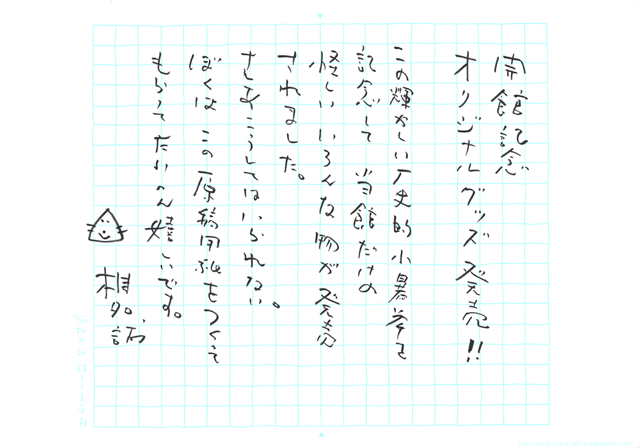 開館記念
オリジナルグッズ発売!!
この輝かしい歴史的小暴挙を
記念して 当館だけの
怪しいいろんな物が発売
されました。
さあこうしてはいられない。
ぼくは この原稿用紙をつくって
もらって たいへん嬉しいです。